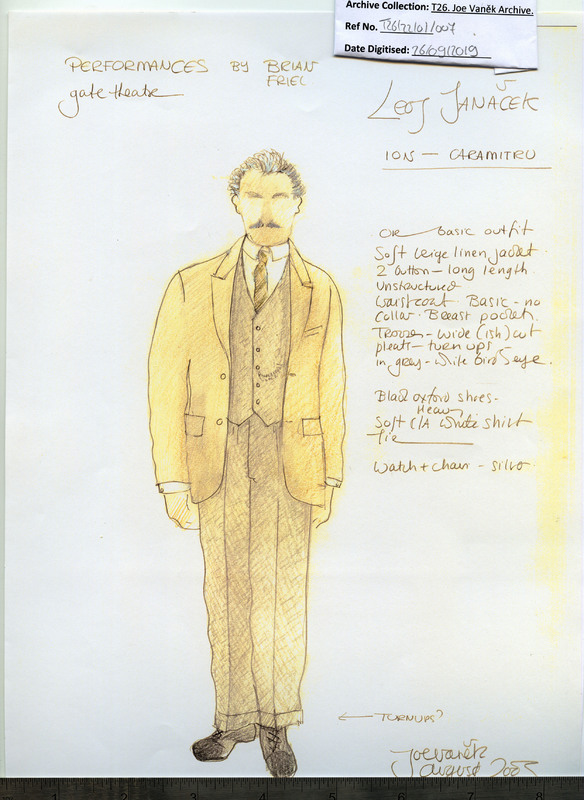 Archive Collection: T26. Joe Vaněk Archive.
Ref No. T26/22/01/007
Date Digitised: 26/09/2019
PERFORMANCES BY BRIAN
FRIEL
gate theatre
Leoš JANÁCEK
ION — CARAMITRU
basic outfit
Soft beige linen jacket.
2 button - long length.
Unstructured
Waistcoat. Basic - no
Collar. Breast pocket.
Trouser - wide (ish) cut
pleats - turn ups -
in grey - white birdseye.
Black oxford shoes -
Heavy
Soft C/A White shirt
Tie
Watch + chain - silver.
← TURNUPS?
Joe Vaněk
August 2003
1 2 3 4 5 6 7 8